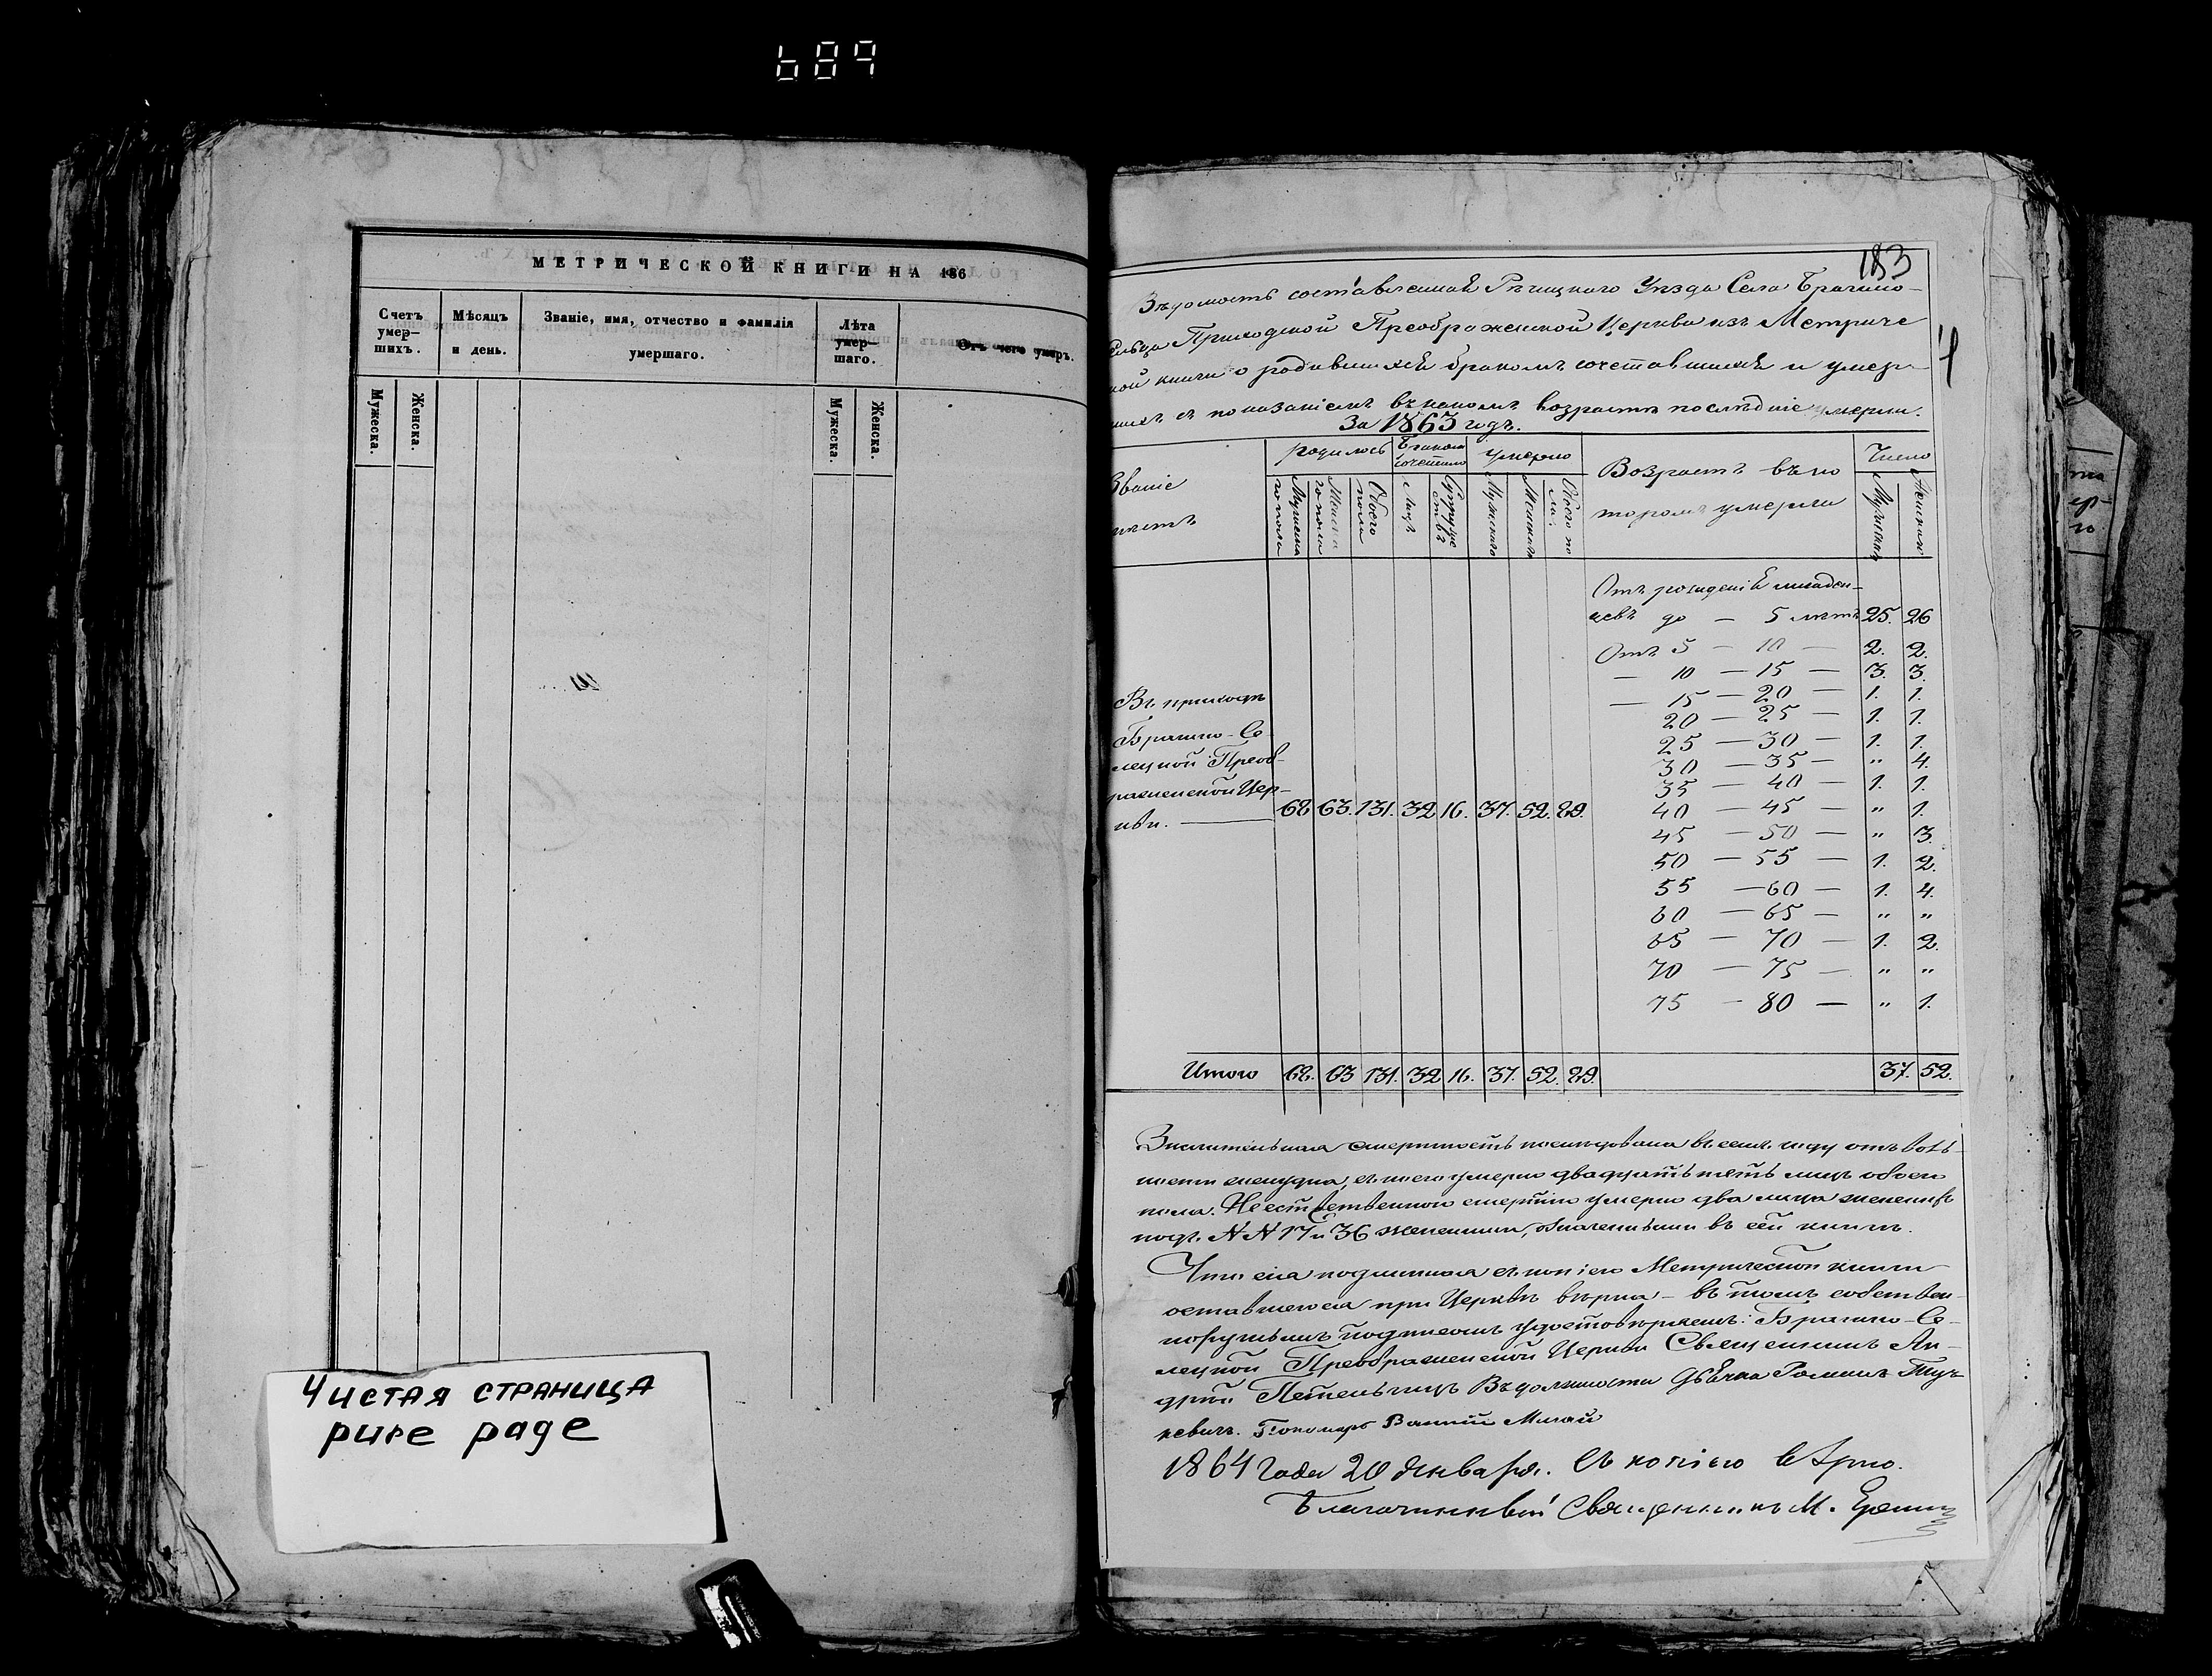 689
МЕТРИЧЕСКОЙ КНИГИ НА 186
Счетъ умер-шихъ.
Мѣсяцъ и день.
Званіе, имя, отчество и фамилія умершаго.
Лѣта умер-шаго.
Отъ чего умеръ.
Мужеска.
Женска.
Мужеска.
Женска.
Чистая страница
pure page
183
Вѣдомость составленная Рѣчицкого Уѣзда Села Брагино-
Сельца Приходской Преображенской Церкви изъ Метриче
ской книги о родившихся бракомъ сочетавшихся и умер-
шихъ съ показаніемъ въ какомъ возрастѣ послѣдніе умерли.
За 1863 годъ.
Званіе
мѣстъ
родилось
Бракомъ сочетало
умерло
Возрастъ въ ко
торомъ умерли
Число
Мужеска го пола
Женска го пола
Обоего пола
Лицъ
Супруже ствъ
Мужескаго
Женскаго
Обоего по ла
Мужескаго
Женскаго
Отъ рожденія младен-
цевъ до — 5 лѣтъ 25. 26
Отъ 5 — 10 — 2. 2.
— 10 — 15 — 3. 3.
— 15 — 20 — 1. 1.
20 — 25 — 1. 1.
25 — 30 — 1. 1.
30 — 35 — " 4.
35 — 40 — 1. 1.
40 — 45 — " 1.
45 — 50 — " 3.
50 — 55 — 1. 2.
55 — 60 — 1. 4.
60 — 65 — " "
65 — 70 — 1. 2.
70 — 75 — " "
75 — 80 — " 1.
Въ приходѣ
Брагино-Се-
лецкой Преоб-
раженской Цер-
кви. — 68 63. 131. 32 16. 37. 52. 89.
Итого 68. 63 131. 32 16. 37. 52. 89. 37. 52.
Значительная смертность послѣдовала въ семъ году отъ
желудка, съ коего умерло двадцать пять лицъ обоего
пола. Неестественною смертію умерло два лица женскихъ
подъ NN 17 и 36 женскими, означенными въ сей книгѣ.
Что сія подлинная съ копіею Метрической книги
оставшеюся при Церкви вѣрна — въ томъ собствен-
норучнымъ подписомъ удостовѣряемъ: Брагино-Се-
лецкой Преображенской Церкви Священникъ Ан-
дрей Въ должности Дьячка Романъ
Пономарь
1864 года 20 января. Съ копіею вѣрно.
Благочинный Священникъ М.